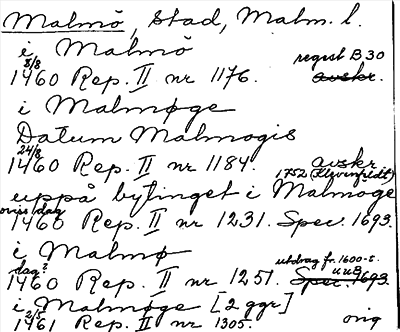 Malmö, stad, Malm. l.
i Malmö
8/8 regest B 30
1460 Rep. II nr 1176. avskr.
i Malmøge
Datum Malmogis
24/8 avskr
1460 Rep. II nr 1184. 1752 (Klevenfeldt)
uppå bytinget i Malmøge
oviss dag
1460 Rep. II nr 1231. Spec. 1693.
i Malmø
dag? utdrag fr. 1600-t.
1460 Rep. II nr 1251. Spec. 1693 UUB
i Malmøge [2 ggr]
2/5 orig
1461 Rep. II nr 1305.